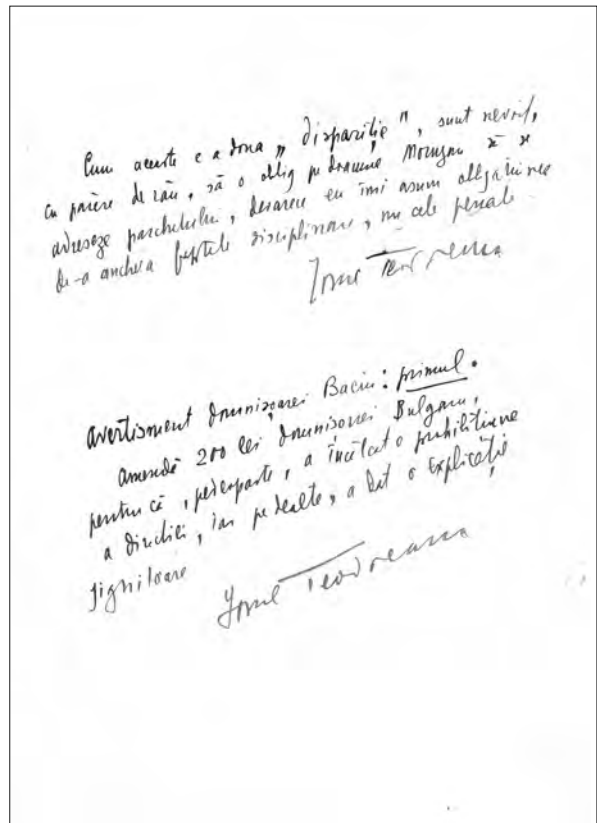 Cum aceasta e a doua „dispariție”, sunt nevoit,
cu părere de rău, să o oblig pe doamna Moruzan să se
adreseze parchetului, deoarece eu îmi asum obligațiunea
de-a ancheta faptele disciplinare, nu cele penale
Ionel Teodoreanu
Avertisment domnișoarei Baciu: primul.
Amendă 200 lei domnisoarei Bulgaru,
pentru că, pe de o parte, a încălcat o prohibițiune
a direcției, iar pe de alta, a dat o explicație
jignitoare
Ionel Teodoreanu